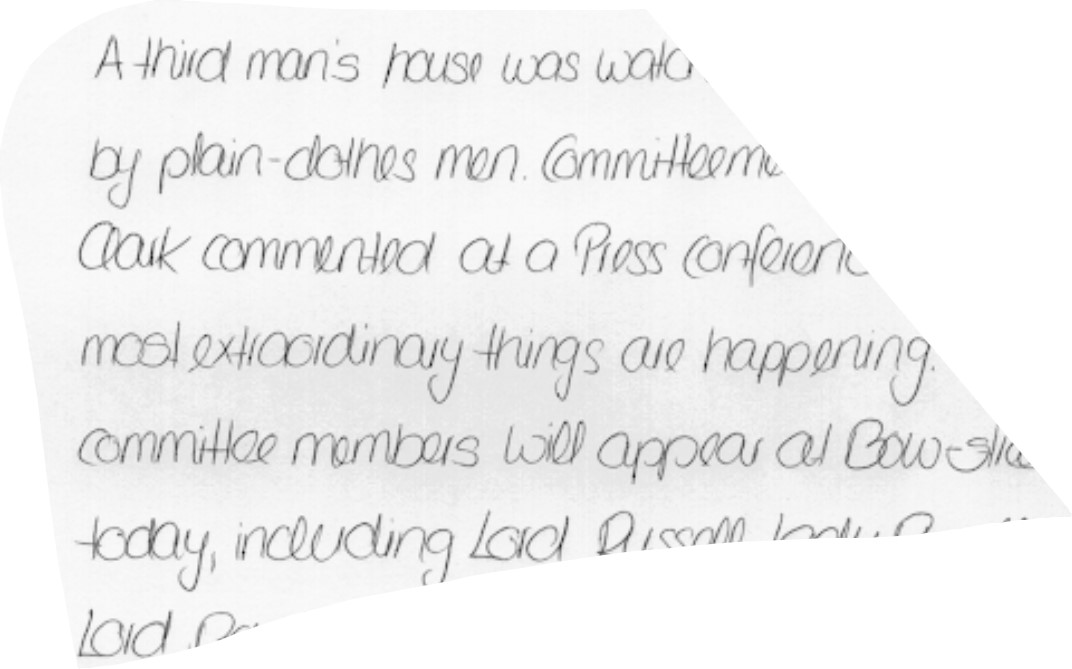 A third man's house was
by plain-clothes men.
Clark commented at a Press
most extraordinary things are happening.
committee members will appear at
today, including Lord Russell, Lady
Lord